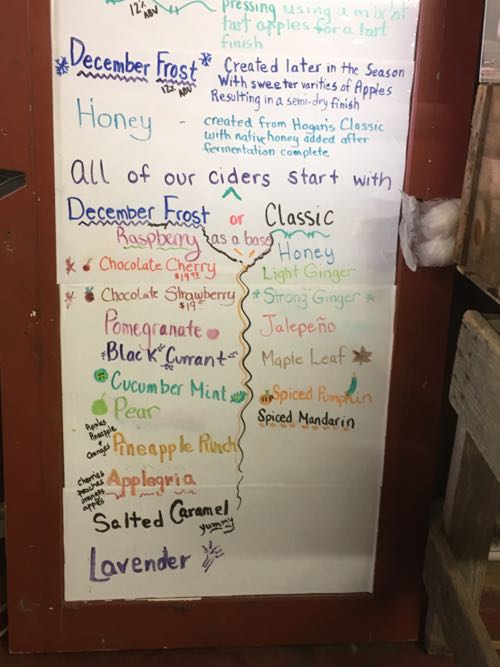 12% ABV
pressing using a mix of
tart apples for a tart
finish
December Frost
12% ABV
Created later in the Season
With sweeter varities of Apples
Resulting in a semi-dry finish
Honey -
created from Hogan's Classic
with native honey added after
fermentation complete
All of our ciders start with
December Frost or Classic
as a base
Raspberry
Chocolate Cherry
Chocolate Strawberry
Pomegranate
Black Currant
Cucumber Mint
Pear
Apples
Pineapple
+
Oranges
Pineapple Punch
cherries
peaches
oranges
apples
Applegria
Salted Caramel
yummy
Lavender
Honey
Light Ginger
Strong Ginger
Jalepeño
Maple Leaf
Spiced Pumpkin
Spiced Mandarin